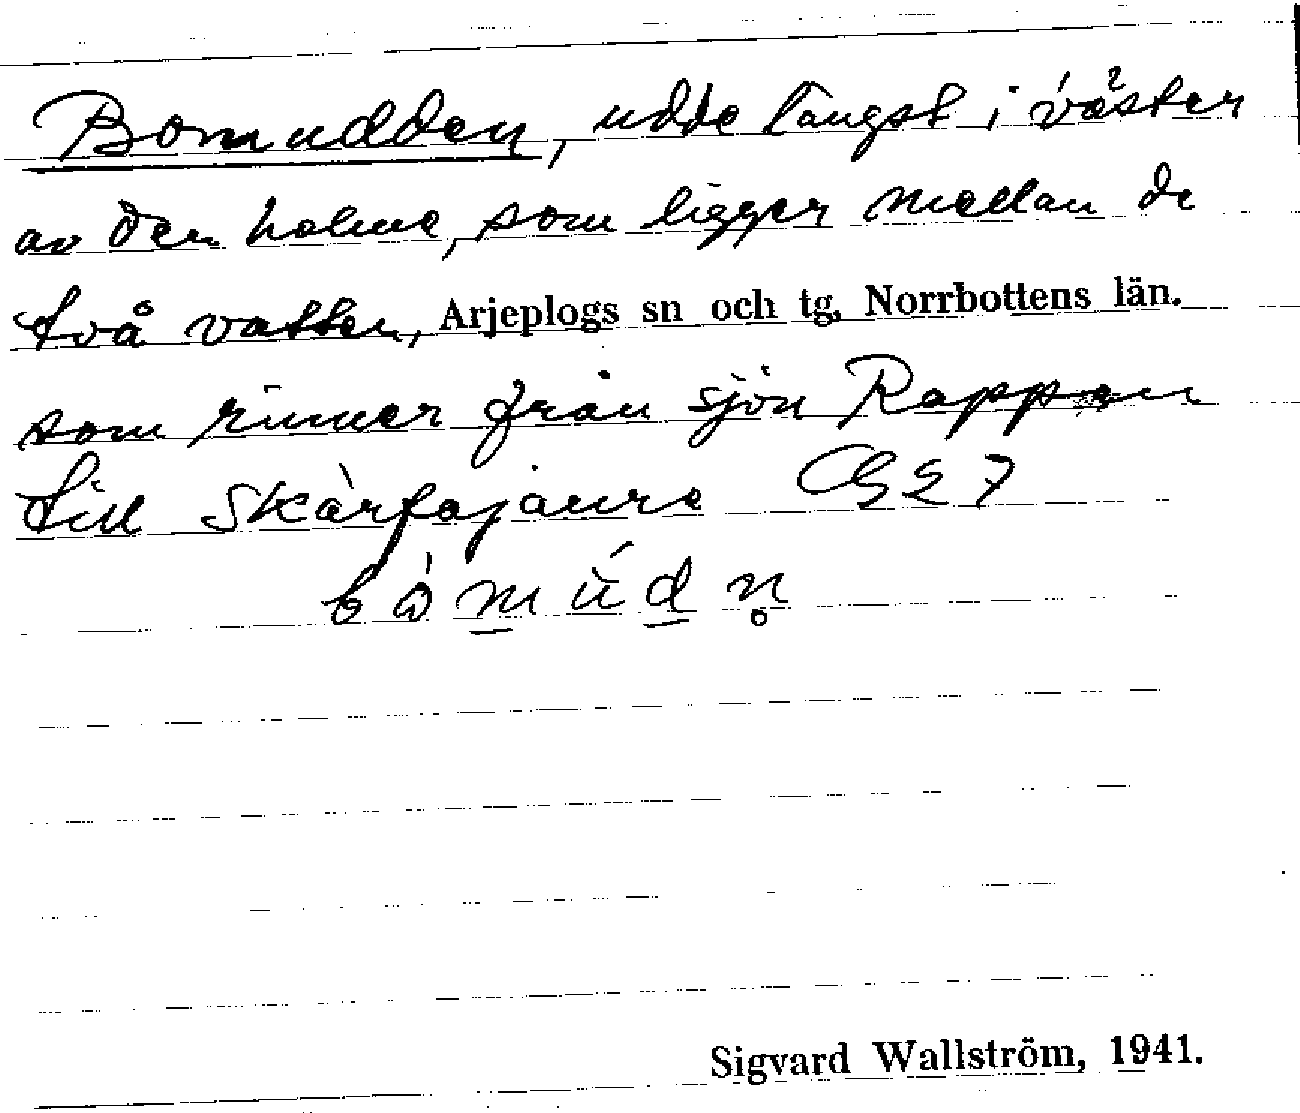 Bomudden, udde längst i väster
av den holme, som ligger mellan de
två vatten, Arjeplogs sn och tg, Norrbottens län.
som rinner från sjön Rappen
till Skärfajaure G 27
bòmúdn̥
Sigvard Wallström, 1941.